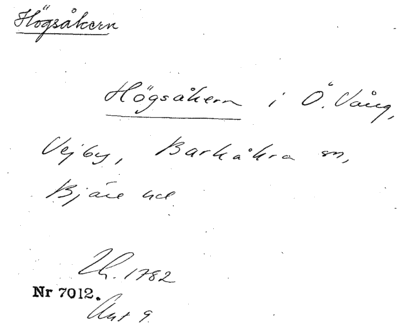 Högsåkern
Högsåkern i Ö. Vång,
Vejby, Barkåkra sn,
Bjäre hd
Lh. 1782
Nr 7012.
Akt 9